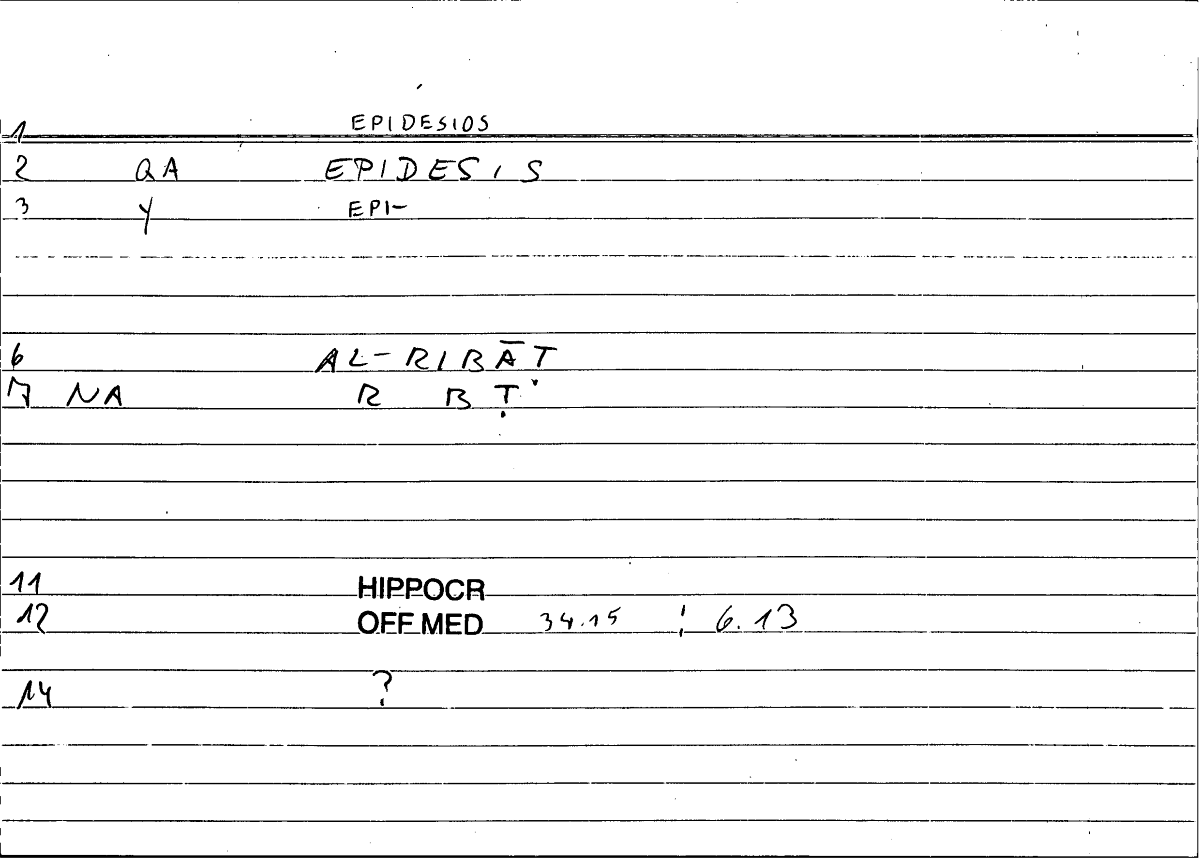 1 EPIDESIOS
2 QA EPIDESIS
3 Y EPI-
6 AL-RIBĀṬ
7 NA R B Ṭ
11 HIPPOCR
12 OFF MED 34.15 ; 6.13
14 ?